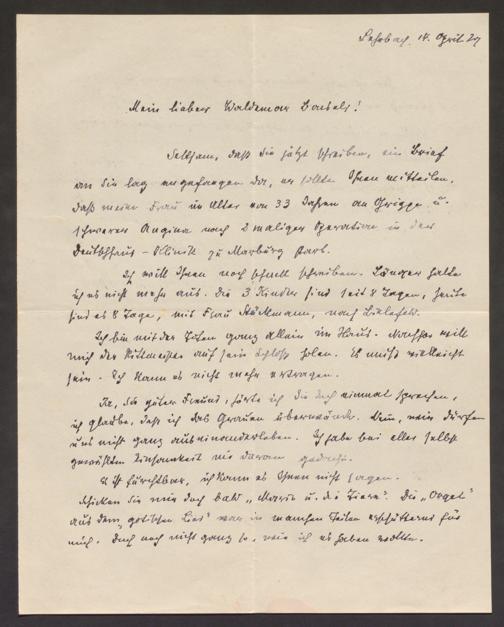 Sehrbach, 14. April 27
Mein lieber Waldemar Bonsels!
Seltsam, daß Sie jetzt schreiben, ein Brief
an Sie lag angefangen da, er sollte Ihnen mitteilen,
daß meine Frau im Alter von 33 Jahren an Grippe u.
schwerer Angina nach 2 maliger Operation in der
Deutschhaus-Klinik zu Marburg starb.
Ich will Ihnen noch schnell schreiben. Länger halte
ich es nicht mehr aus. Die 3 Kinder sind seit 8 Tagen, heute
sind es 8 Tage, mit Frau nach Bielefeld.
Ich bin mit der Toten ganz allein im Haus. Nachher will
mich der Rittmeister auf sein Schloß holen. Es muß vielleicht
sein. Ich kann es nicht mehr ertragen.
Ja, Sie guter Freund, hörte ich Sie doch einmal sprechen,
ich glaube, daß ich das Grauen überwände. Nein, wir dürfen
uns nicht ganz auseinanderleben. Ich habe bei aller selbst
gewählten Einsamkeit nie daran gedacht.
Es ist fürchtbar, ich kann es Ihnen nicht sagen.
Schicken Sie mir doch bald „Mario u. die Tiere". Die „Orgel"
aus dem „gotischen Lied" war in manchen Teilen erschütternd für
mich. Doch noch nicht ganz so, wie ich es haben wollte.